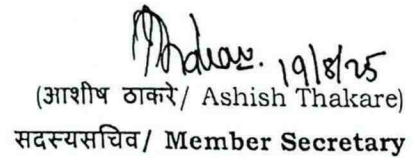 Thakare. 19/8/25
(आशीष ठाकरे/ Ashish Thakare)
सदस्यसचिव/ Member Secretary